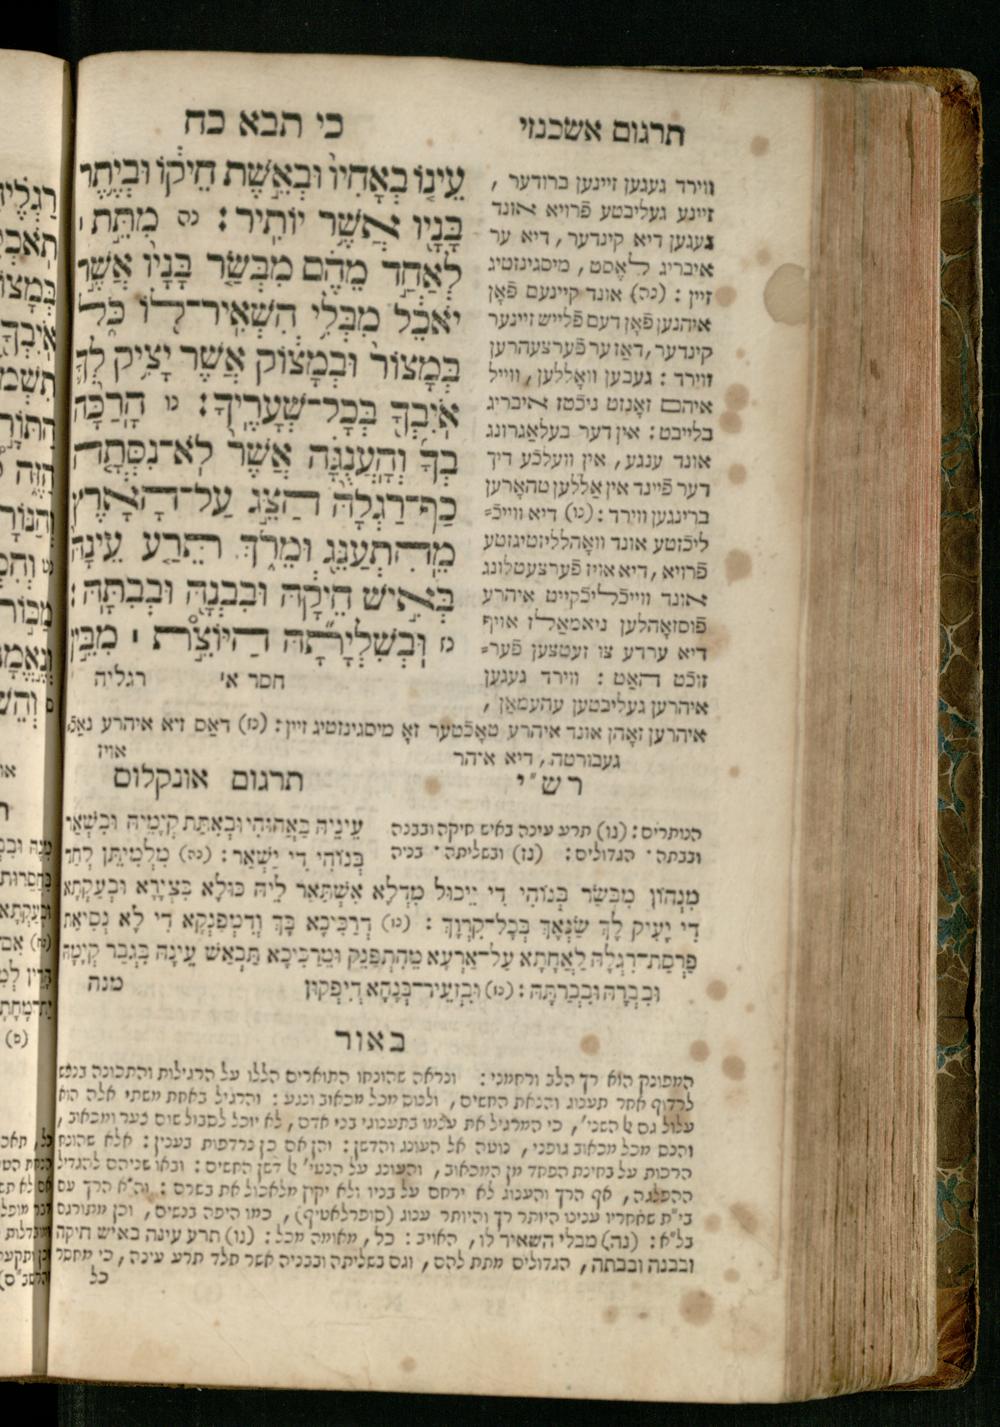 תרגום אשכנזי
כי תבא כח
עֵינ֤וֹ בְאָחִיו֙ וּבְאֵ֣שֶׁת חֵיק֔וֹ וּבְיֶ֥תֶר
בָּנָ֖יו אֲשֶׁ֥ר יוֹתִֽיר׃ נה מִתֵּ֣ת ׀
לְאַחַ֣ד מֵהֶ֗ם מִבְּשַׂ֤ר בָּנָיו֙ אֲשֶׁ֣ר
יֹאכֵ֔ל מִבְּלִ֥י הִשְׁאִֽיר־ל֖וֹ כֹּ֑ל
בְּמָצוֹר֙ וּבְמָצ֔וֹק אֲשֶׁ֨ר יָצִ֥יק לְךָ֛
אֹֽיִבְךָ֖ בְּכׇל־שְׁעָרֶֽיךָ׃ נו הָרַכָּ֨ה
בְךָ֜ וְהָעֲנֻגָּ֗ה אֲשֶׁ֨ר לֹא־נִסְּתָ֤ה
כַף־רַגְלָהּ֙ הַצֵּ֣ג עַל־הָאָ֔רֶץ
מֵהִתְעַנֵּ֖ג וּמֵרֹ֑ךְ תֵּרַ֤ע עֵינָהּ֙
בְּאִ֣ישׁ חֵיקָ֔הּ וּבִבְנָ֖הּ וּבְבִתָּֽהּ׃
נז וּֽבְשִׁלְיָתָ֞הּ הַיּוֹצֵ֣ת ׀ מִבֵּ֣ין
חסר א' רגליה
ווירד געגען זיינען ברודער ,
זיינע געליבטע פֿרויא אונד
געגען דיא קינדער , דיא ער
איבריג לאֶסט , מיסגינזטיג
זיין : (נה) אונד קיינעם פֿאָן
איהנען פֿאָן דעם פֿלייש זיינער
קינדער , דאַז ער פֿערצעהרען
ווירד : געבען וואָללען , ווייל
איהם זאָנזט ניכֿטז איבריג
בלייבט : אין דער בעלאַגרונג
אונד ענגע , אין וועלכֿע דיך
דער פֿיינד אין אַללען טהאָרען
ברינגען ווירד : (נו) דיא ווייכֿ=
ליכֿזטע אונד וואָהלליזטיגזטע
פֿרויא , דיא אויז פֿערצעטלונג
אונד ווייכֿליכֿקייט איהרע
פֿוסזאָהלען ניאמאַלז אויף
דיא ערדע צו זעטצען פֿער=
זוכֿט האַט : ווירד געגען
איהרען געליבטען עהעמאַן ,
איהרען זאָהן אונד איהרע טאָכֿטער זאָ מיסגינזטיג זיין : (נז) דאַס זיא איהרע נאָכֿ
געבורטה , דיא איהר אויז
רש"י
תרגום אונקלוס
הנותרים : (נו) תרע עינה באיש חיקה ובבנה
ובבתה · הגדולים : (נז) ובשליתה · בניה
עֵינֵיהּ בַּאֲחוּהִי וּבְאִתַּת קְיָמֵיהּ וּבִשְׁאַר
בְּנוֹהִי דִי יִשְׁאַר : (נה) מִלְמִיתַּן לְחַד
מִנְהוֹן מִבְּשַׂר בְּנוֹהִי דִי יֵיכוּל מִדְלָא אִשְׁתְּאַר לֵיהּ כּוּלָא בְּצִירָא וּבְעָקְתָא
דִי יָעִיק לָךְ שַׂנְאָךְ בְּכָל־קִרְוָךְ : (נו) דְרַכִּיכָא בָךְ וְדִמְפַנְקָא דִי לָא נַסִיאַת
פַּרְסַת־רִגְלָהּ לַאֲחָתָא עַל־אַרְעָא מֵהִתְפַּנֵק וּמֵרַכִּיכָא תַּבְאֵשׁ עֵינָהּ בִּגְבַר קְיָמָהּ
וּבִבְרָהּ וּבִבְרַתָּהּ : (נז) וּבִזְעֵיר־בְּנָהָא דְיִפְּקוּן מנה
באור
המפונק הוא רך הלב ורחמני : ונראה שהונחו התוארים הללו על הרגילות והתכונה בנפש
לרדוף אחר תענוג והנאת החשים , ולנוס מכל מכאוב ונגע : והרגיל באחת משתי אלה הוא
עלול גם אל השני' , כי המרגיל את עצמו בתענוגי בני אדם , לא יוכל לסבול שום צער ומכאוב ,
והנס מכל מכאוב גופני , נוטה אל העונג והדשן : והן אם כן נרדפות בענין : אלא שהונח
הרכות על בחינת הפחד מן המכאוב , והעונג על הנטי' אל דשן החשים : ובאו שניהם להגדיל
ההפלגה , אף הרך והענוג לא ירחם על בניו ולא יקוץ מלאכול את בשרם : וה"א הרך עם
בי"ת שאחריו ענינו היותר רך והיותר ענוג (סופרלאטיף) , כמו היפה בנשים , וכן מתורגם
בל"א : (נה) מבלי השאיר לו , האויב : כל , מאומה מכל : (נו) תרע עינה באיש חיקה
ובבנה ובבתה , הגדולים מתת להם , וגם בשליתה ובבניה אשר תלד תרע עינה , כי מחסר
כל